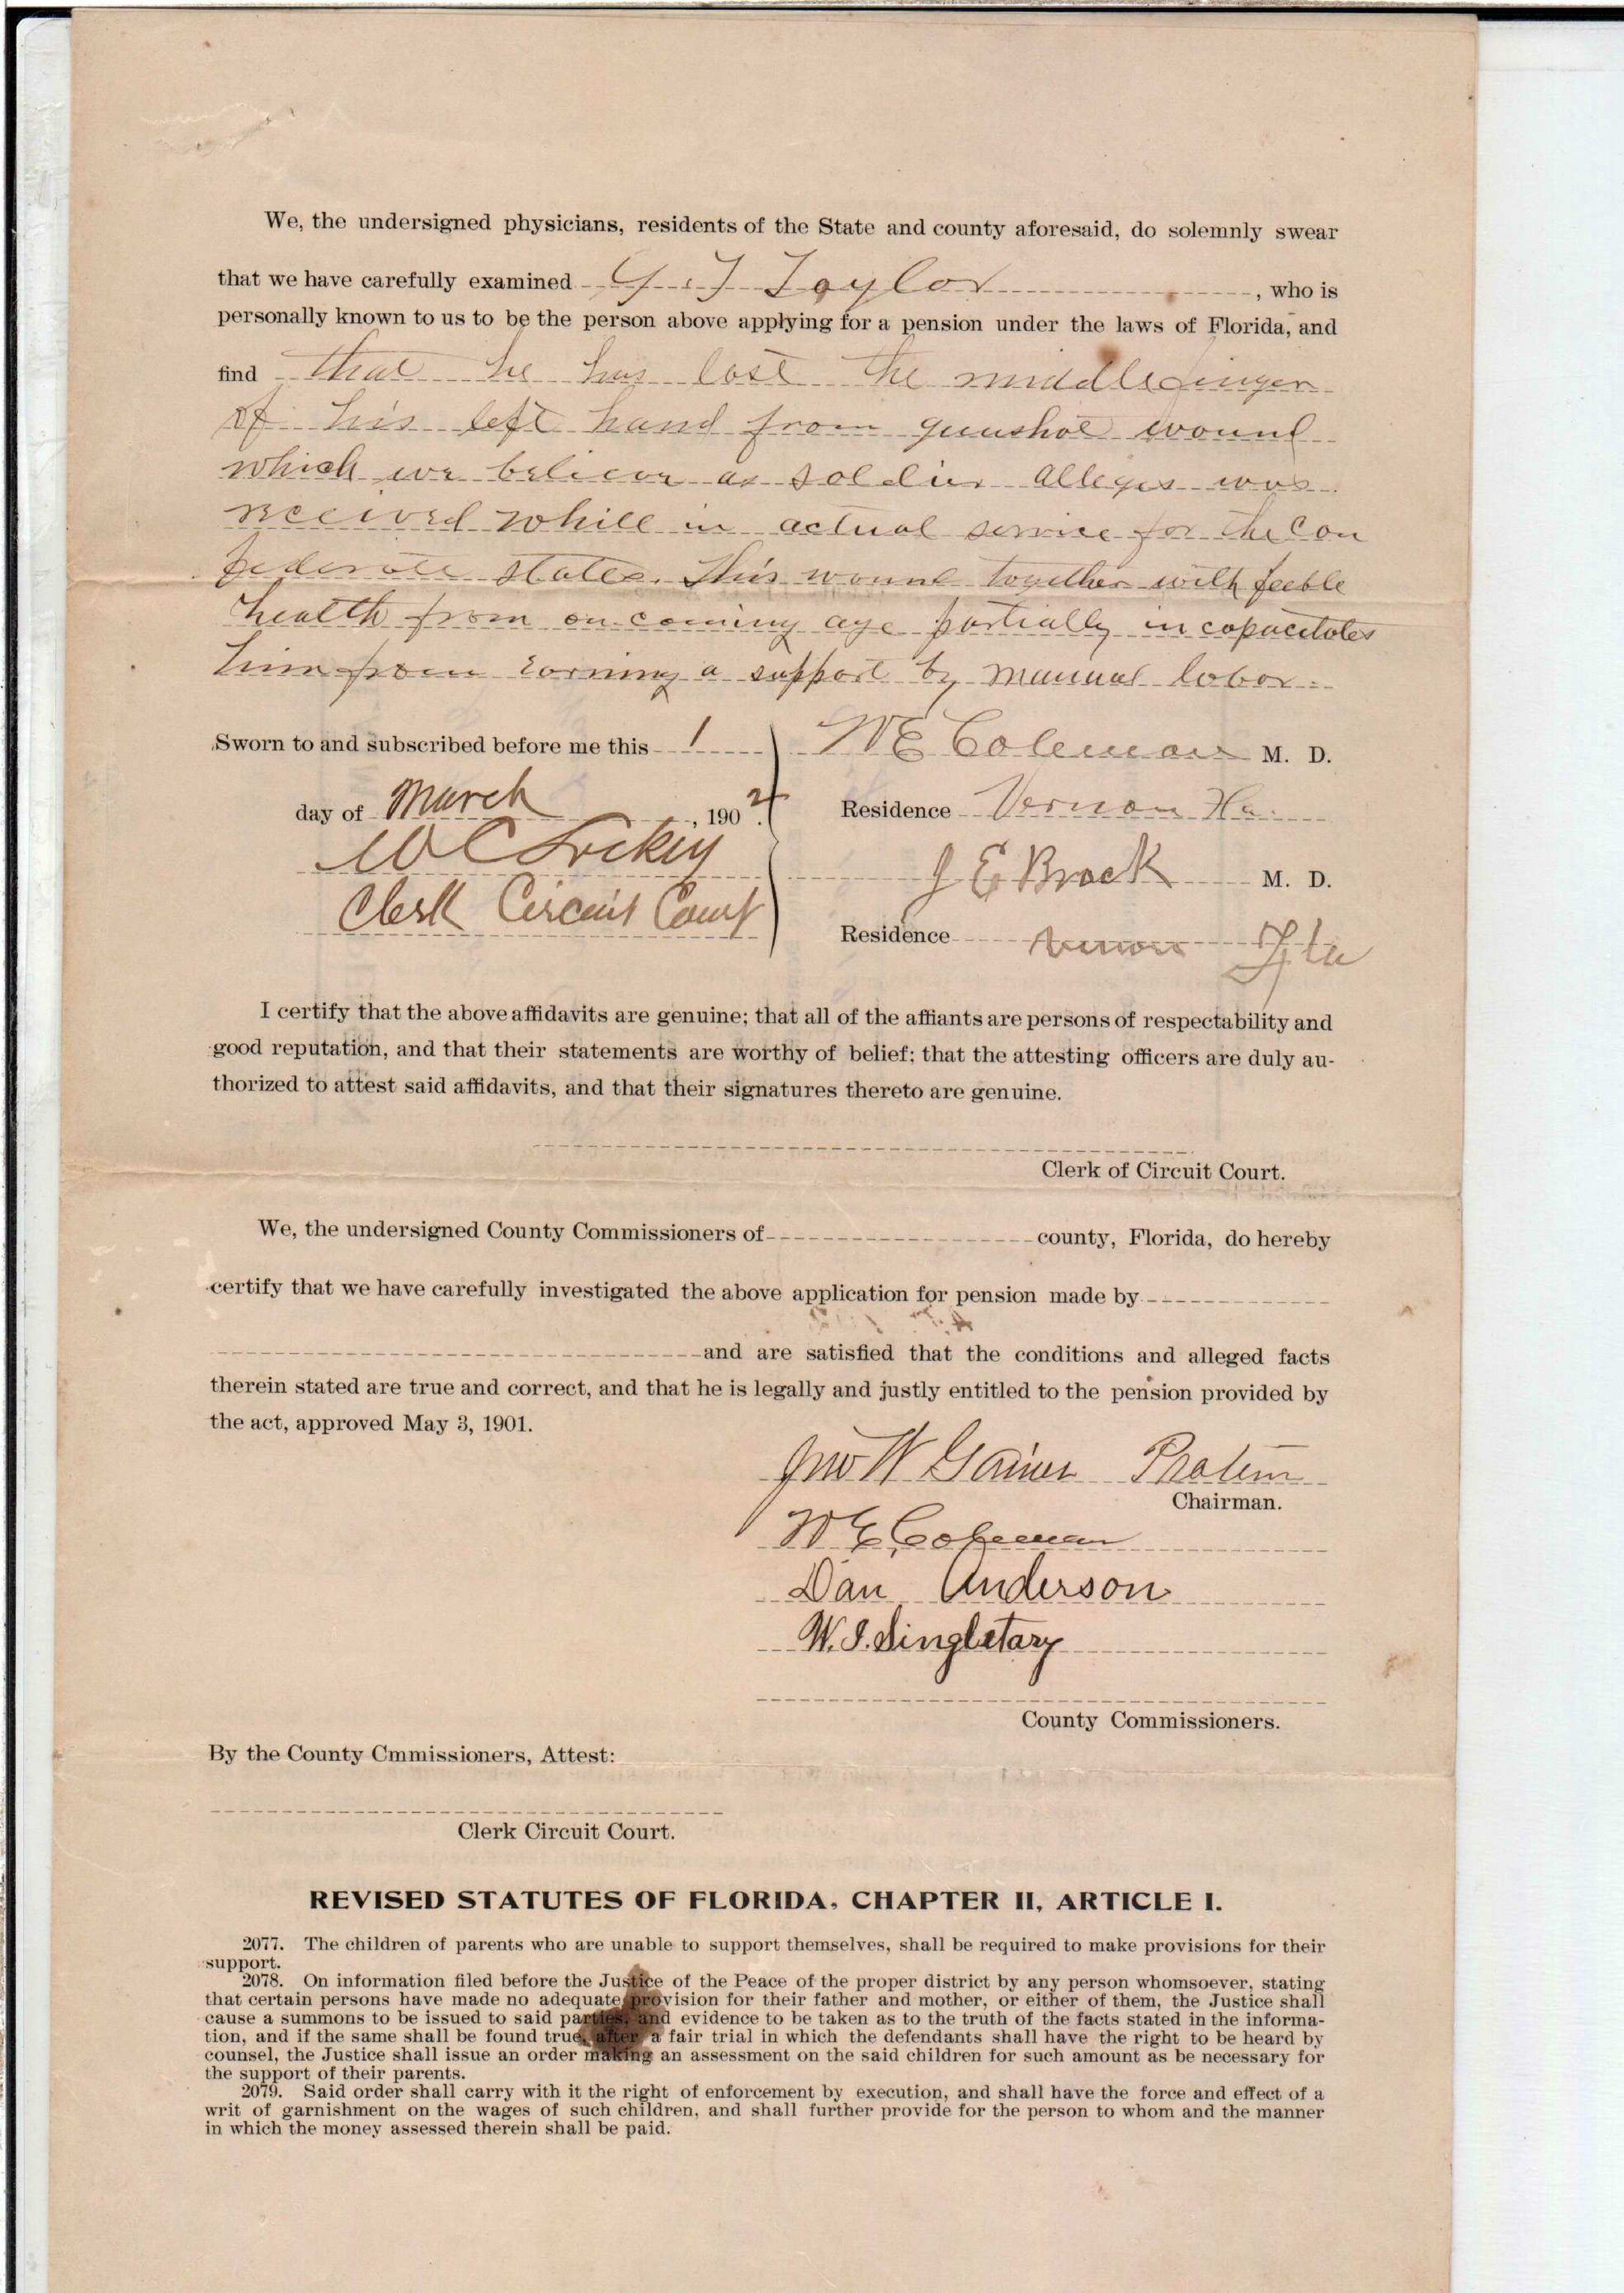 We, the undersigned physicians, residents of the State and county aforesaid, do solemnly swear
that we have carefully examined G. T Taylor, who is
personally known to us to be the person above applying for a pension under the laws of Florida, and
find that he has lost the middle finger
of his left hand from gunshot wound
which we believe as soldier alleges was
received while in actual service for the Con
federate states. This wound together with feeble
health from on coming age partially incapacitates
him from earning a support by manual labor.
Sworn to and subscribed before me this 1
W E Coleman M. D.
day of March, 1902.
Residence Vernon Fla.
W C Lockey
J E Brock M. D.
Clerk Circuit Court
Residence Vernon Fla
I certify that the above affidavits are genuine; that all of the affiants are persons of respectability and
good reputation, and that their statements are worthy of belief; that the attesting officers are duly au-
thorized to attest said affidavits, and that their signatures thereto are genuine.
Clerk of Circuit Court.
We, the undersigned County Commissioners of county, Florida, do hereby
certify that we have carefully investigated the above application for pension made by
and are satisfied that the conditions and alleged facts
therein stated are true and correct, and that he is legally and justly entitled to the pension provided by
the act, approved May 3, 1901.
Jno W Gainer Protem
Chairman.
W E Coleman
Dan Anderson
W. J. Singletary
County Commissioners.
By the County Cmmissioners, Attest:
Clerk Circuit Court.
REVISED STATUTES OF FLORIDA, CHAPTER II, ARTICLE I.
2077. The children of parents who are unable to support themselves, shall be required to make provisions for their
support.
2078. On information filed before the Justice of the Peace of the proper district by any person whomsoever, stating
that certain persons have made no adequate provision for their father and mother, or either of them, the Justice shall
cause a summons to be issued to said parties, and evidence to be taken as to the truth of the facts stated in the informa-
tion, and if the same shall be found true, after a fair trial in which the defendants shall have the right to be heard by
counsel, the Justice shall issue an order making an assessment on the said children for such amount as be necessary for
the support of their parents.
2079. Said order shall carry with it the right of enforcement by execution, and shall have the force and effect of a
writ of garnishment on the wages of such children, and shall further provide for the person to whom and the manner
in which the money assessed therein shall be paid.